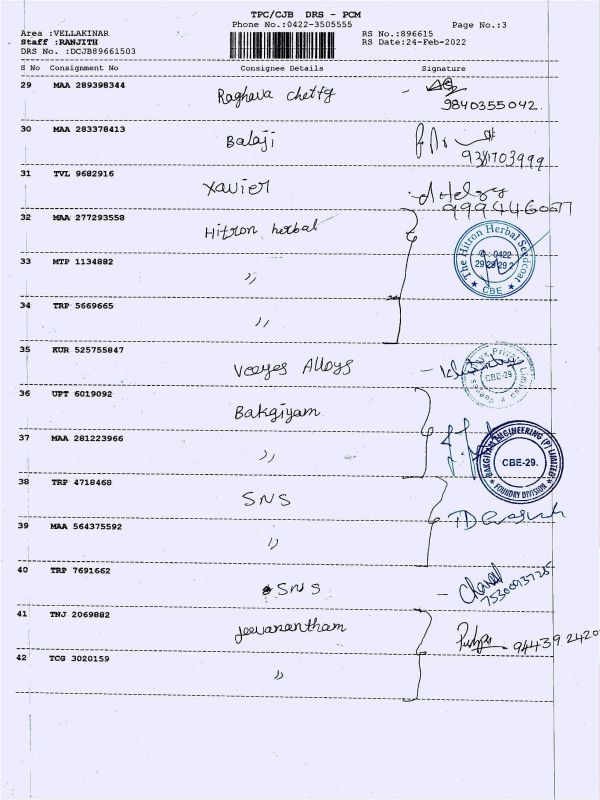 TPC/CJB DRS - PCM
Phone No.:0422-3505555 Page No.:3
Area :VELLAKINAR RS No.:896615
Staff :RANJITH RS Date:24-Feb-2022
DRS No. :DCJB89661503
S No Consignment No Consignee Details Signature
29 MAA 289398344 Raghava Chetty
9840355042.
30 MAA 283378413 Balaji
31 TVL 9682916 Xavier
9994460577
32 MAA 277293558 Hitron herbal
The Hitron Herbal Seedcoat
CBE
33 MTP 1134882 ,,
34 TRP 5669665 ,,
35 KUR 525755847 Veeyes Alloys
CBE-29
36 UPT 6019092 Bakgiyam
37 MAA 281223966 ,,
BAKGIYAM ENGINEERING (P) LIMITED
CBE-29.
FOUNDRY DIVISION
38 TRP 4718468 SNS
39 MAA 564375592 ,,
40 TRP 7691662 SNS
41 TNJ 2069882 Jeevanantham
94439 2420
42 TCG 3020159 ,,